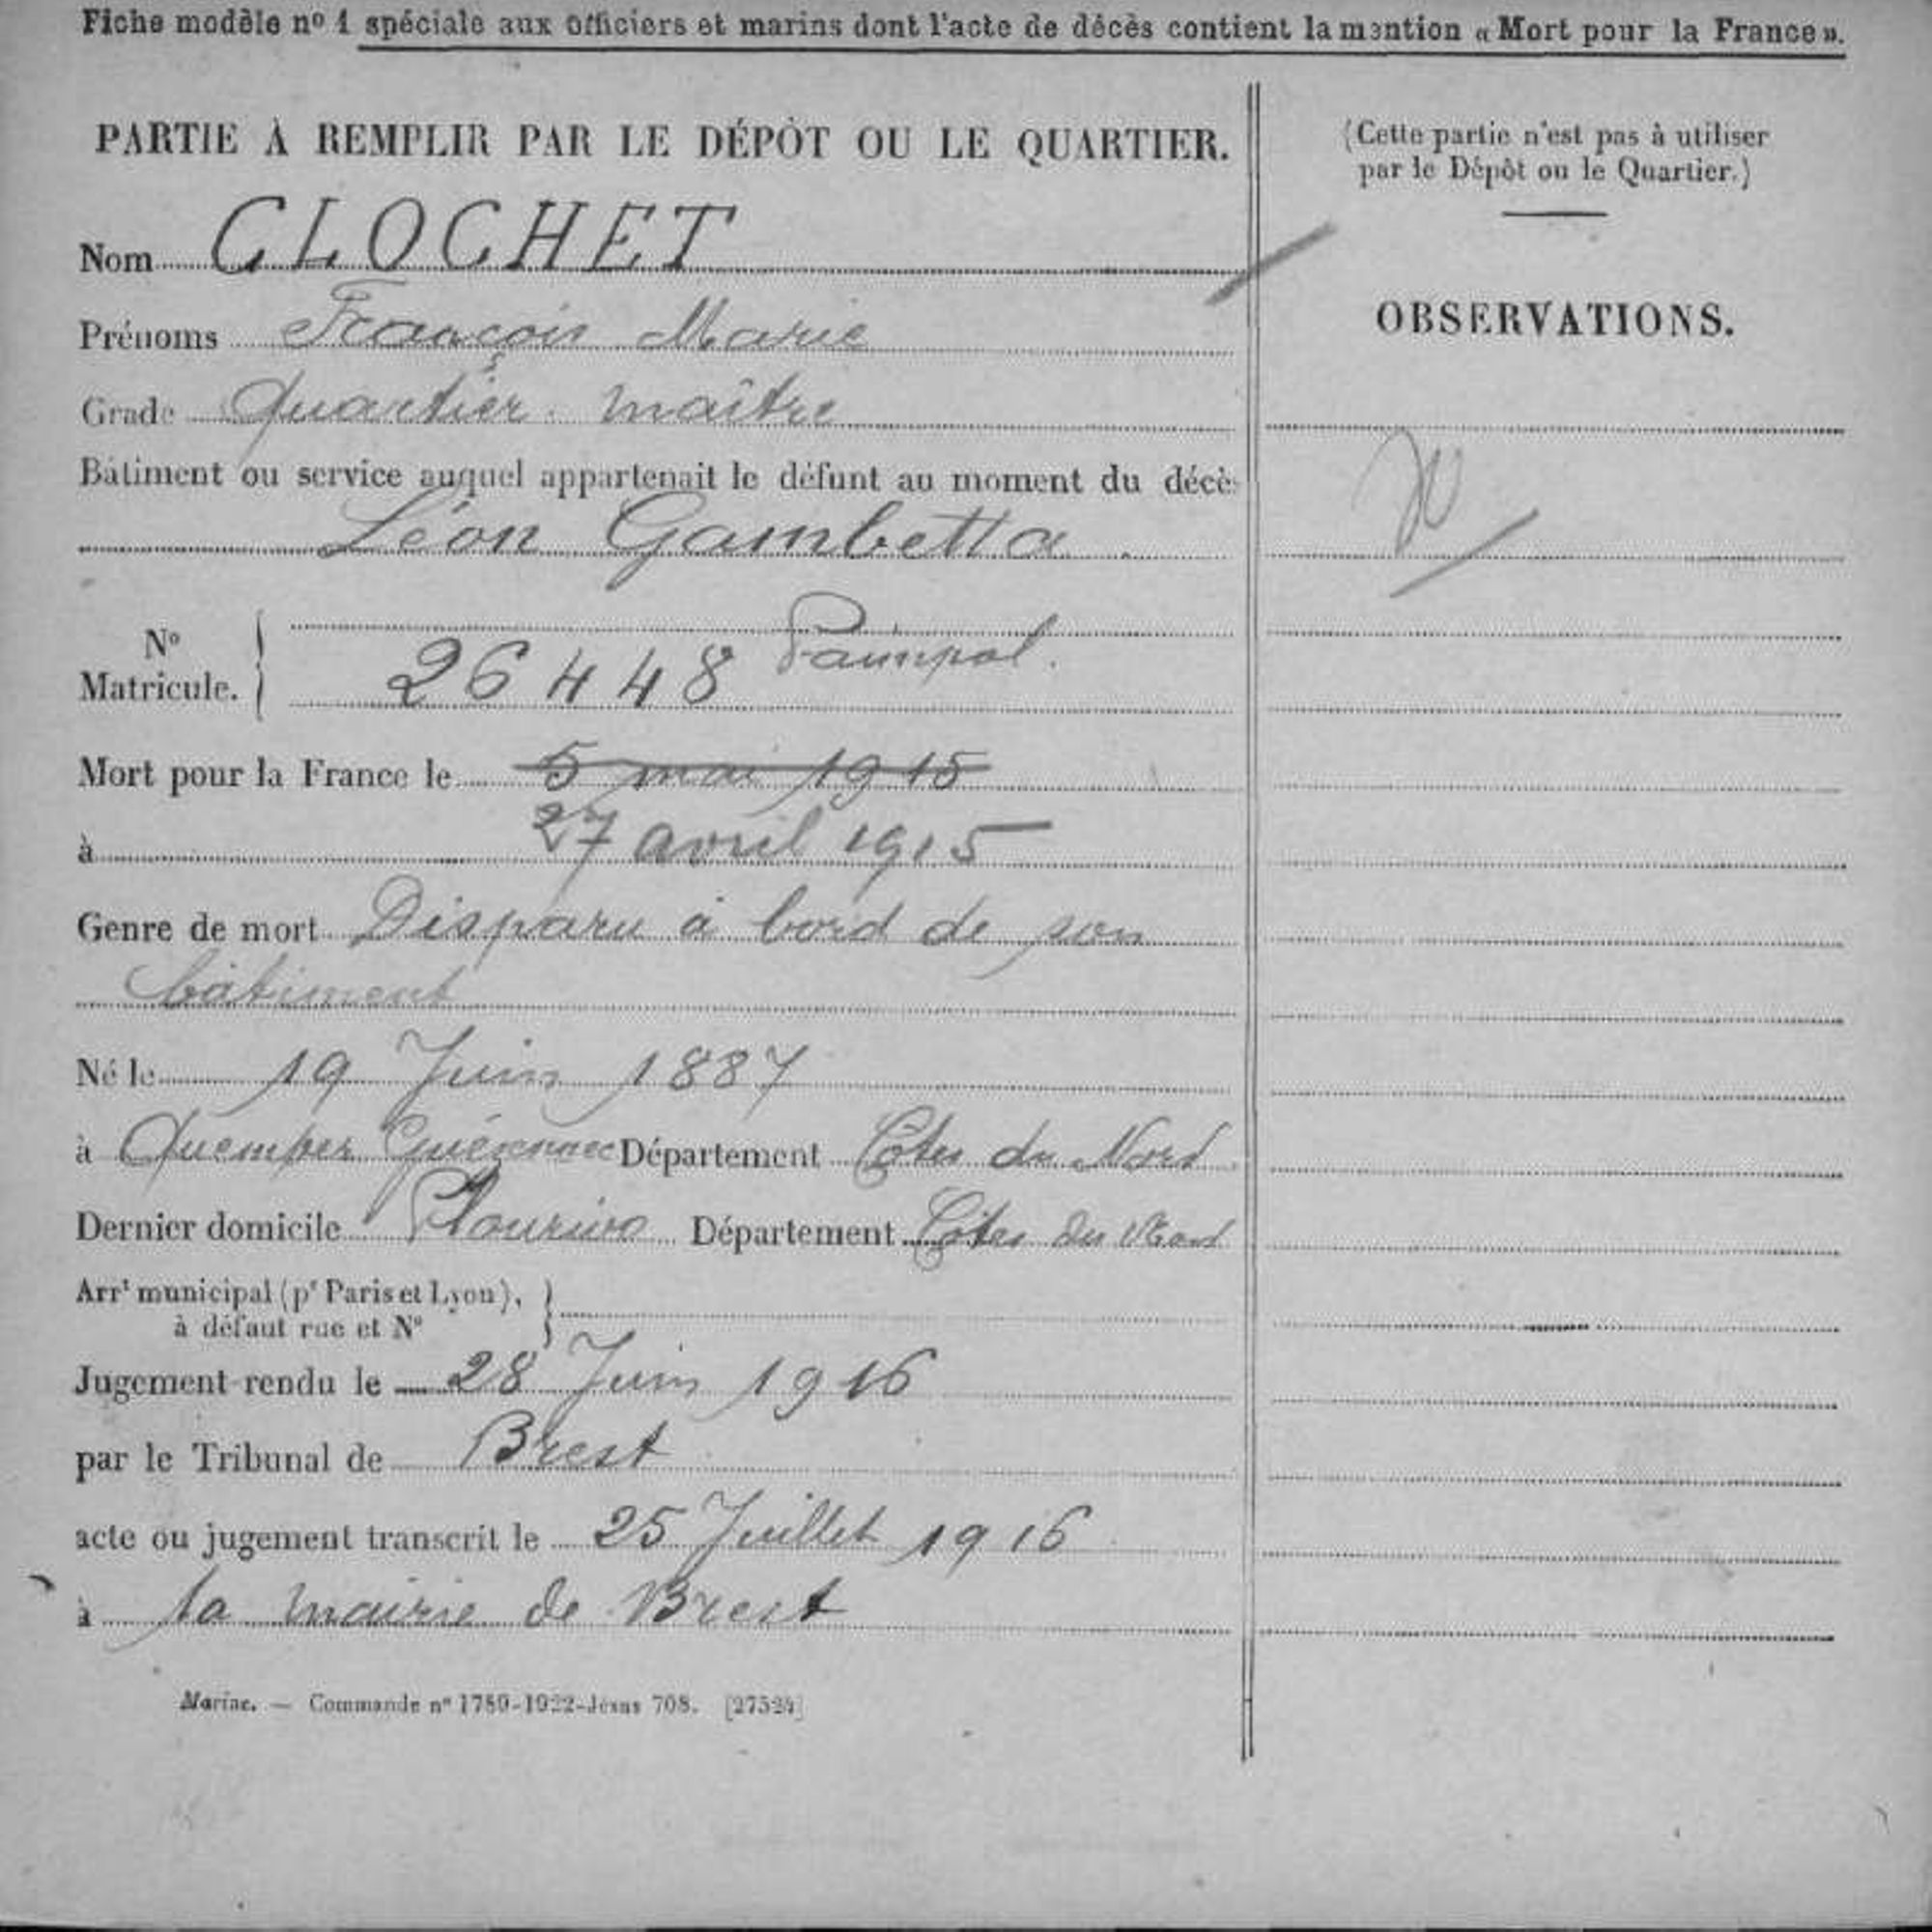 Fiche modèle nº 1 spéciale aux officiers et marins dont l'acte de décès contient la mention « Mort pour la France ».
PARTIE À REMPLIR PAR LE DÉPÔT OU LE QUARTIER.
Nom CLOCHET
Prénoms François Marie
Grade Quartier maître
Bâtiment ou service auquel appartenait le défunt au moment du décès
Léon Gambetta.
Nº Matricule. 26448 Paimpol.
Mort pour la France le 5 mai 1915
27 avril 1915
à
Genre de mort Disparu à bord de son
bâtiment
Né le 19 Juin 1887
à Quemper Guézennec Département Côtes du Nord
Dernier domicile Plourivo Département Côtes du Nord
Arrt municipal (pr Paris et Lyon),
à défaut rue et Nº
Jugement rendu le 28 Juin 1916
par le Tribunal de Brest
acte ou jugement transcrit le 25 Juillet 1916
à la mairie de Brest
Marine. — Commande nº 1789-1922-Jésus 708. [27524]
(Cette partie n'est pas à utiliser
par le Dépôt ou le Quartier.)
OBSERVATIONS.